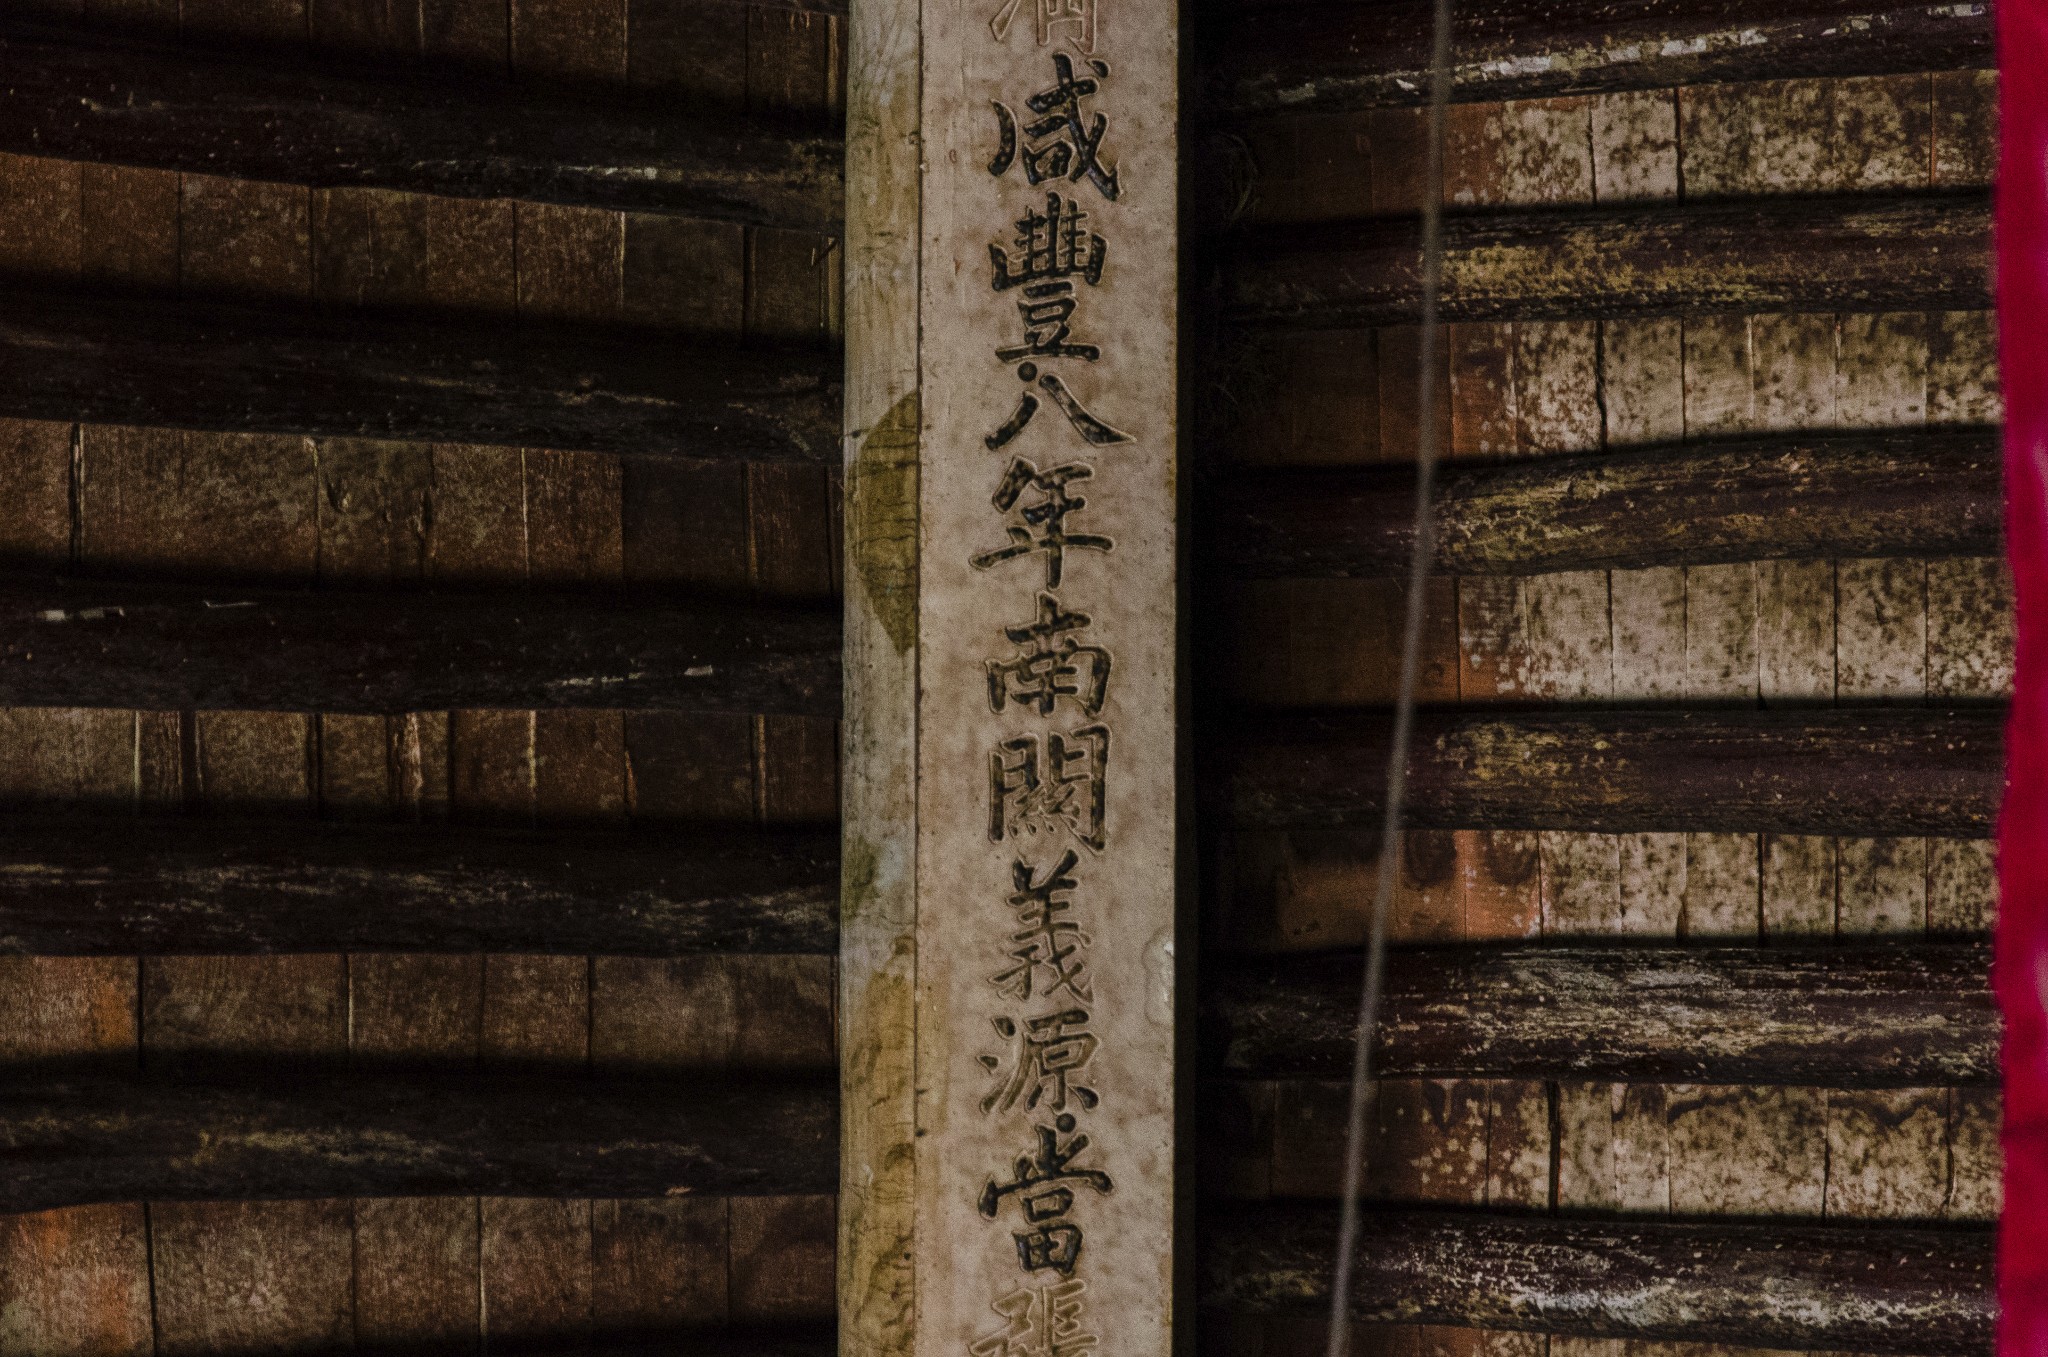 咸豐八年南闗義源當